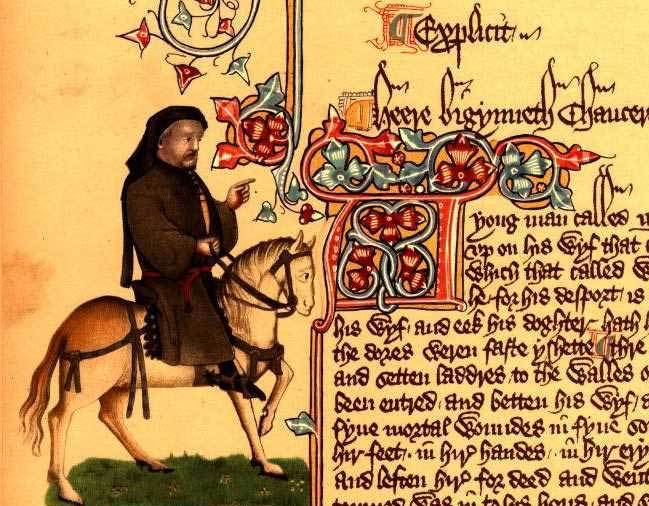 Explicit
Heere bigynneth Chaucer
A yong man called
vp on his wyf that
which that called
he for his desport is
his wyf / and eek his doghter / hath
the dores weren faste yshette / thre
and setten laddres / to the walles
been entred / and betten his wyf /
fyue mortal woundes in fyue
hir feet / in hir handes / in hir
and leften hir for deed and went
turned was in to his hous and